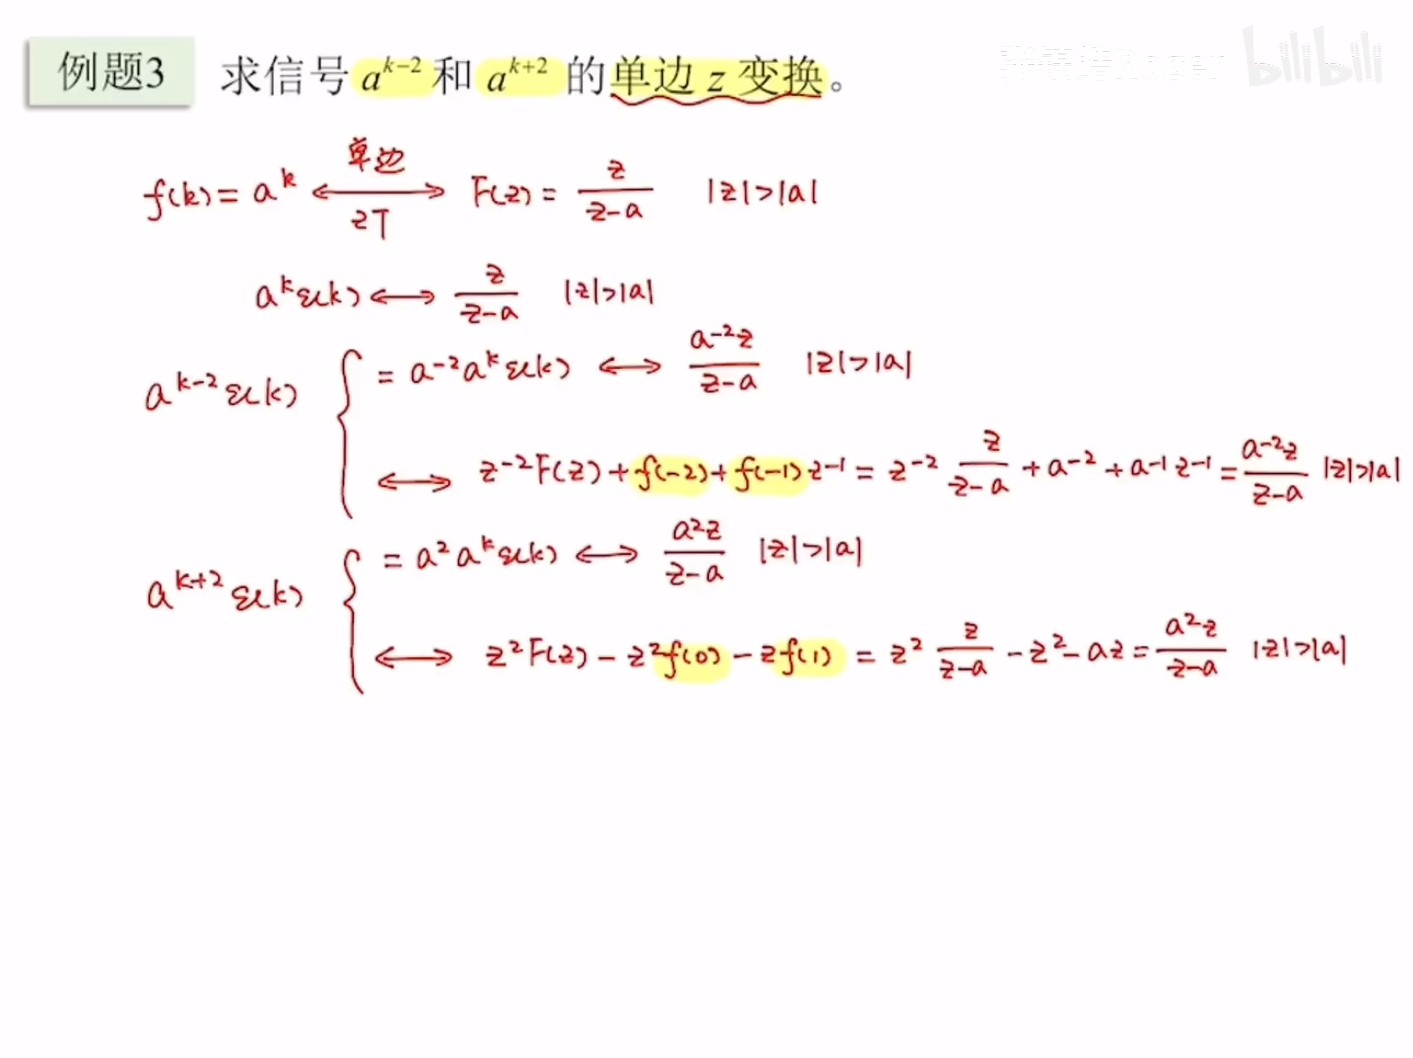 例题3 求信号 a^{k-2} 和 a^{k+2} 的单边 z 变换。
bilibili
f(k) = a^k ⟷ F(z) = z/(z-a) |z|>|a|
单边
zT
a^k ε(k) ⟷ z/(z-a) |z|>|a|
a^{k-2} ε(k) { = a^{-2} a^k ε(k) ⟷ a^{-2}z/(z-a) |z|>|a|
⟷ z^{-2}F(z) + f(-2) + f(-1)z^{-1} = z^{-2} z/(z-a) + a^{-2} + a^{-1}z^{-1} = a^{-2}z/(z-a) |z|>|a|
a^{k+2} ε(k) { = a^2 a^k ε(k) ⟷ a^2z/(z-a) |z|>|a|
⟷ z^2F(z) - z^2f(0) - zf(1) = z^2 z/(z-a) - z^2 - az = a^2z/(z-a) |z|>|a|